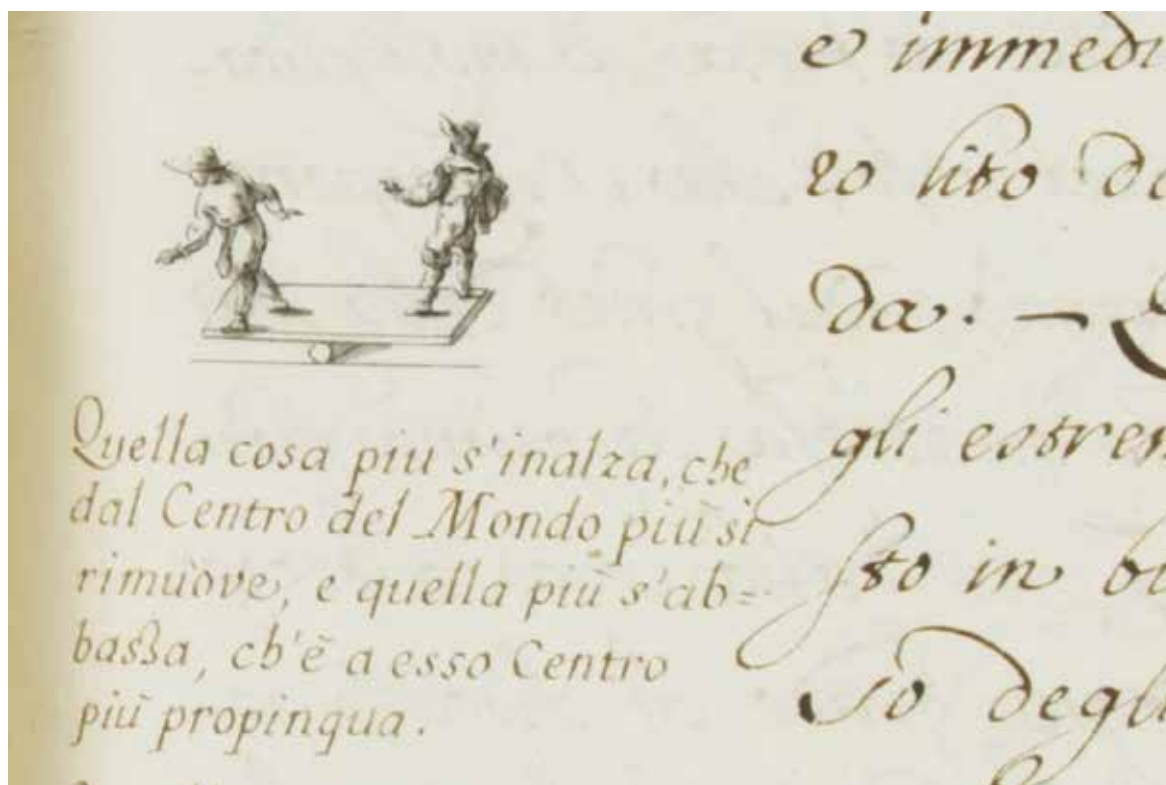 Quella cosa piu s'inalza, che
dal Centro del Mondo più si
rimuove, e quella più s'ab=
bassa, ch'è a esso Centro
più propinqua.
e immedi
ro lito da
da. —
gli estrem
sto in bi
so degli